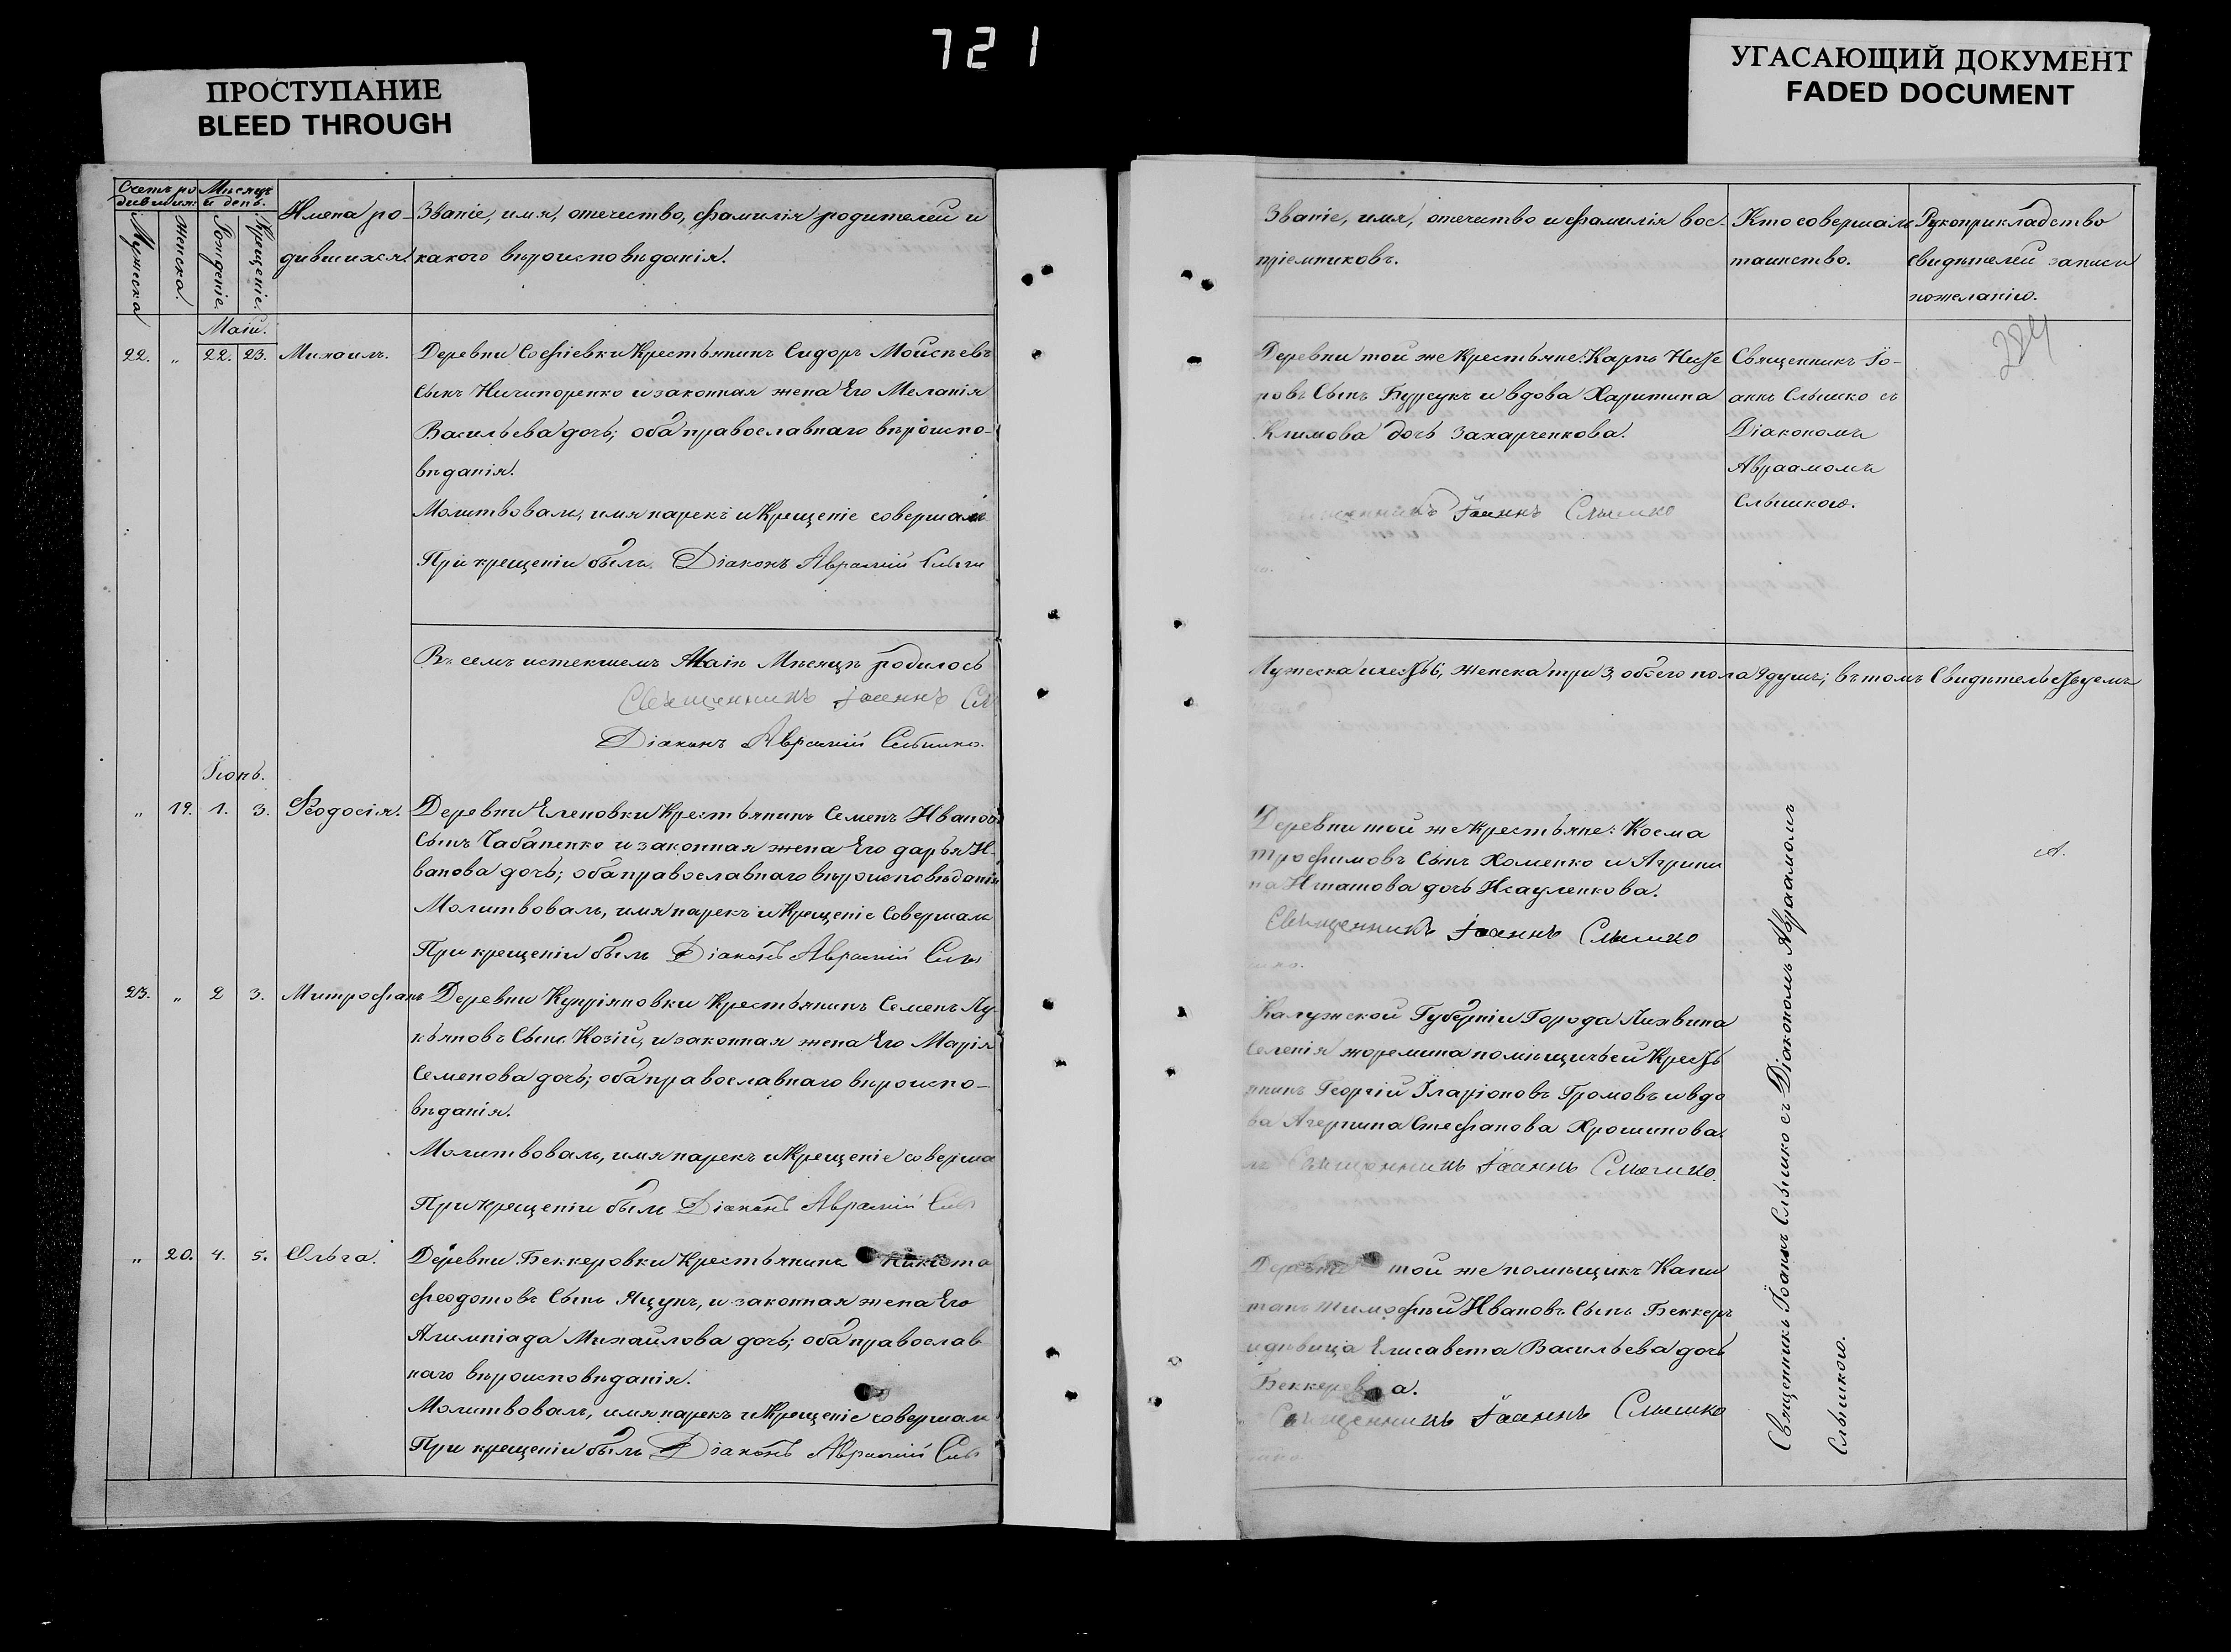 721
ПРОСТУПАНИЕ
BLEED THROUGH
УГАСАЮЩИЙ ДОКУМЕНТ
FADED DOCUMENT
Счетъ ро
дившихся.
Мѣсяцъ
и день.
Мужска
Женска.
Рожденіе.
Крещеніе.
Имена ро-
дившихся.
Званіе, имя, отечество, фамилія родителей и
какого вѣроисповѣданія.
Маій.
22. „ 22. 23. Михаилъ.
Деревни Софіевки Крестьянинъ Сидоръ Мойсѣевъ
Сынъ Ничипоренко и законная жена Его Меланія
Васильева дочь; оба православнаго вѣроиспо-
вѣданія.
Молитвовалъ, имя нарекъ и Крещеніе совершалъ
При крещеніи былъ Діаконъ Аврамій
Въ семъ истекшемъ Маіѣ Мѣсяцѣ родилось
Священникъ Іоаннъ
Діаконъ Аврамій Слышко.
Іюнь.
„ 19. 1. 3. Феодосія.
Деревни Еленовки Крестьянинъ Семенъ Ивановъ
Сынъ Чабаненко и законная жена Его Дарья И-
ванова дочь; оба православнаго вѣроисповѣданія
Молитвовалъ, имя нарекъ и Крещеніе Совершалъ
При крещеніи былъ Діаконъ Аврамій
23. „ 2 3. Митрофанъ
Деревни Купріяновки Крестьянинъ Семенъ Лу-
кьяновъ Сынъ Козій, и законная жена Его Марія
Семенова дочь; оба православнаго вѣроиспо-
вѣданія.
Молитвовалъ, имя нарекъ и Крещеніе соверша
При крещеніи былъ Діаконъ Аврамій
„ 20. 4. 5. Ольга.
Деревни Беккеровки Крестьянинъ Никита
Феодотовъ Сынъ Яцунъ, и законная жена Его
Алимпіада Михайлова дочь; оба православ
наго вѣроисповѣданія.
Молитвовалъ, имя нарекъ и Крещеніе совершалъ
При крещеніи былъ Діаконъ Аврамій
Званіе, имя, отечество и фамилія вос-
пріемниковъ.
Кто совершалъ
таинство.
Рукоприкладство
свидѣтелей записи
по желанію.
284
Деревни той же Крестьяне: Карпъ
повъ Сынъ Бурсукъ и вдова Харитина
Климова дочь Захарченкова.
Іоаннъ Слышко
Священникъ Іо-
аннъ Слышко съ
Діакономъ
Авраамомъ
Слышкою.
Мужеска шесть 6, Женска три 3, обоего пола 9 душъ; въ томъ Свидѣтельствуемъ
Деревни той же Крестьяне: Косма
Трофимовъ Сынъ Хоменко и Агрипи
на Игнатова дочь Исауленкова.
Священникъ Іоаннъ Слышко
Калужской Губерніи Города Лихвина
Селенія Жоремина помѣщичьей Кресть
янинъ Георгій Иларіоновъ Громовъ и вдо
ва Стефанова Хрошинова.
Священникъ Іоаннъ Слышко.
Деревни той же помѣщикъ Капи
танъ Тимофѣй Ивановъ Сынъ Беккеръ
и дѣвица Елисавета Васильева дочь
Беккерева.
Священникъ Іоаннъ Слышко
Священникъ Іоаннъ Слышко съ Діакономъ Авраамомъ
Слышкою.